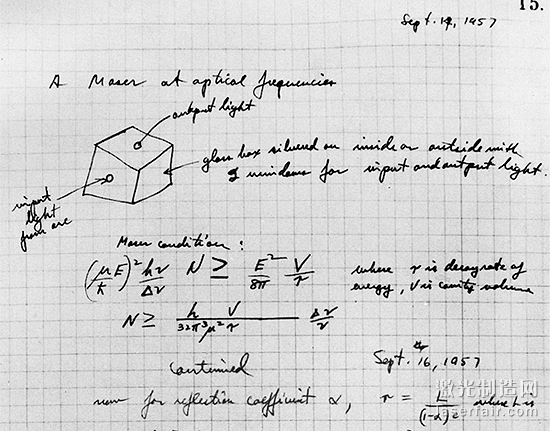 15.
Sept. 14, 1957
A Maser at optical frequencies
output light
glass box silvered on inside or outside with
2 windows for input and output light.
input
light
from arc
Maser condition:
(μE/ħ)² hν/Δν N ≥ E²/8π V/τ where τ is decay rate of
energy, V is cavity volume
N ≥ h/32π³μ² V/τ Δν/ν
Continued Sept. 16, 1957
now for reflection coefficient α, τ = L/(1-α)c where L is
激光制造网
laserfair.com